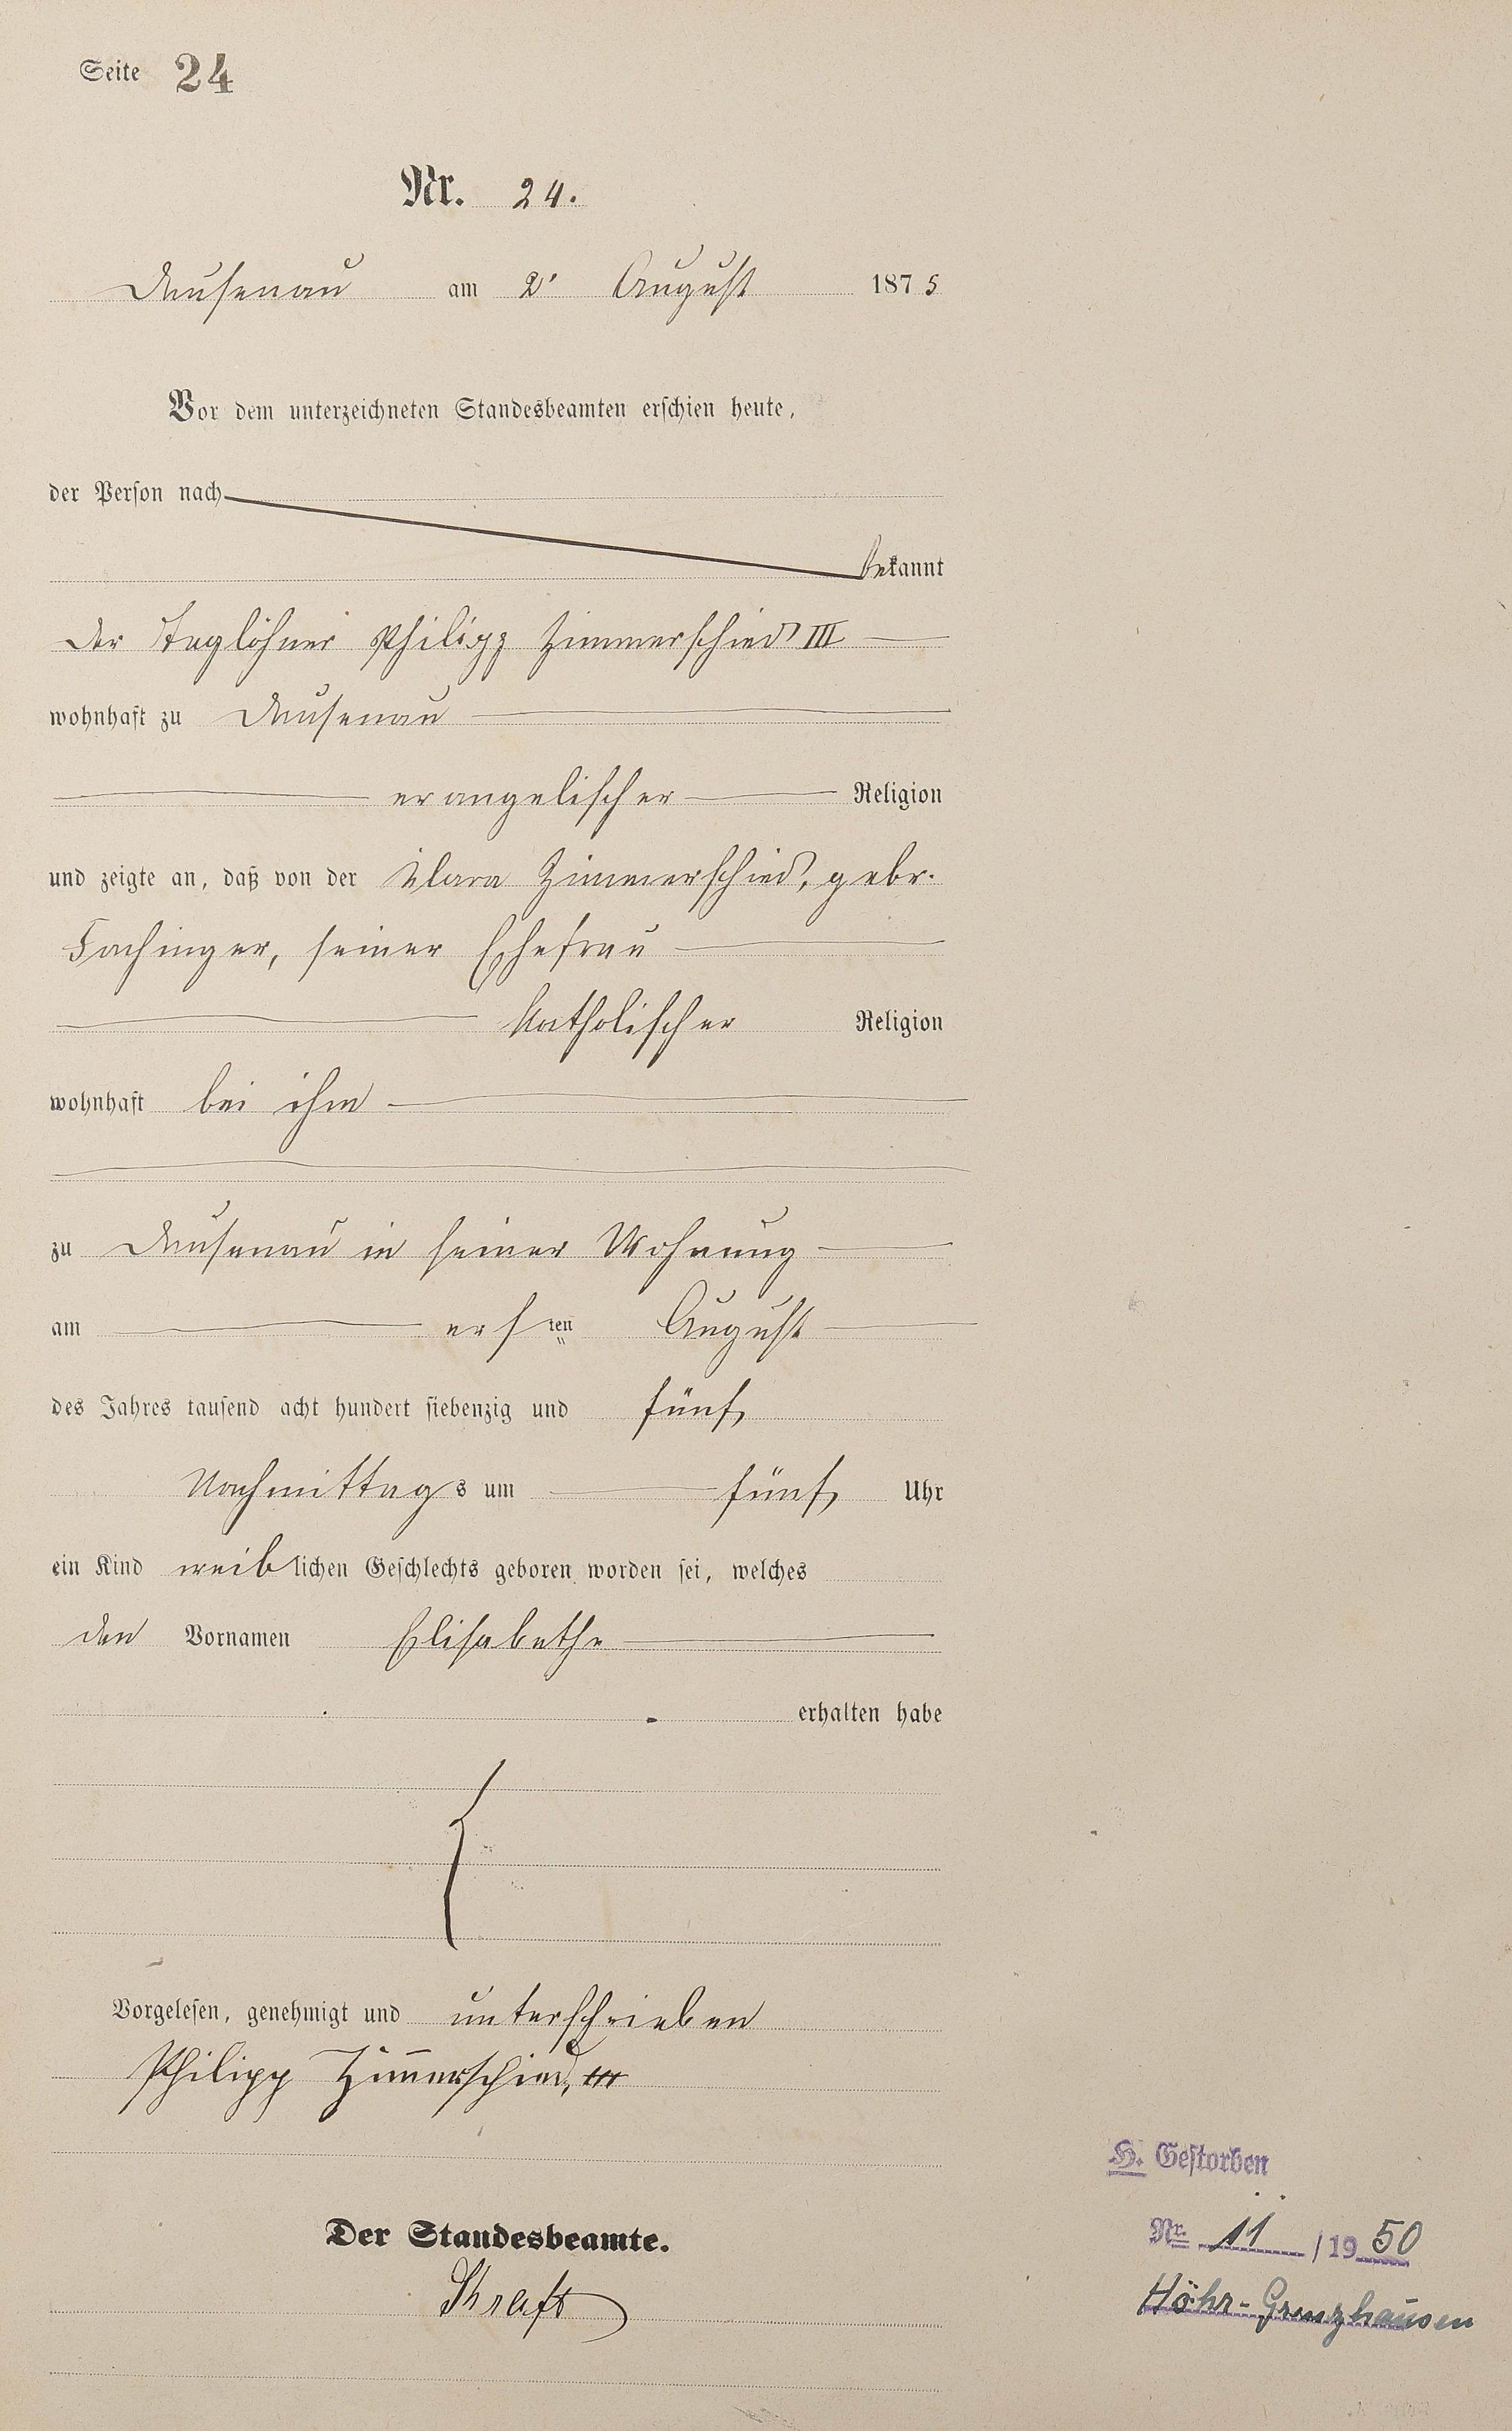 Seite 24
Nr. 24.
Dausenau am 2' August 1875
Vor dem unterzeichneten Standesbeamten erschien heute,
der Person nach
bekannt
Der Taglöhner Philipp Zimmerschied III
wohnhaft zu Dausenau
evangelischer Religion
und zeigte an, daß von der Clara Zimmerschied, gebr.
Fachinger, seiner Ehefrau
katholischer Religion
wohnhaft bei ihm
zu Dausenau in seiner Wohnung
am ersten August
des Jahres tausend acht hundert siebenzig und fünf
Nachmittags um fünf Uhr
ein Kind weiblichen Geschlechts geboren worden sei, welches
den Vornamen Elisabethe
erhalten habe
Vorgelesen, genehmigt und unterschrieben
Philipp Zim̄erschied, III
H. Gestorben
Nr. 11 / 1950
Höhr-Grenzhausen
Der Standesbeamte.
Kraft